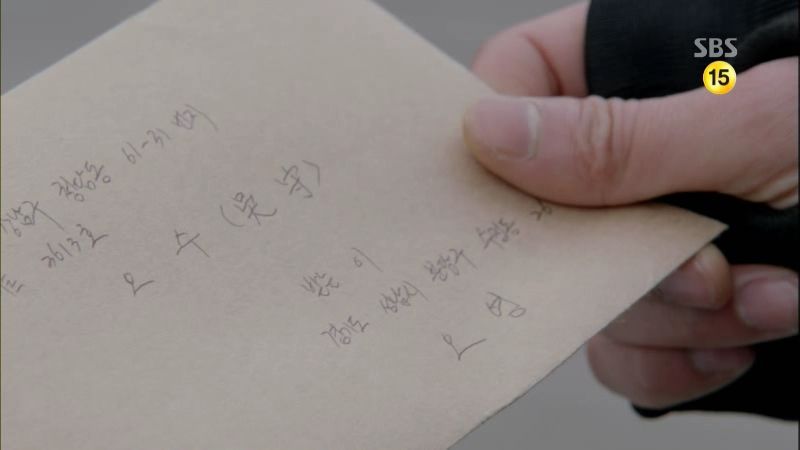 SBS
15
강남구 청담동 61-31 번지
트 2613호
오 수 (吳 守)
받는 이
경기도 성남시 분당구
오 영